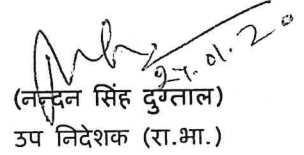 27.01.20
(नन्दन सिंह दुग्ताल)
उप निदेशक (रा.भा.)